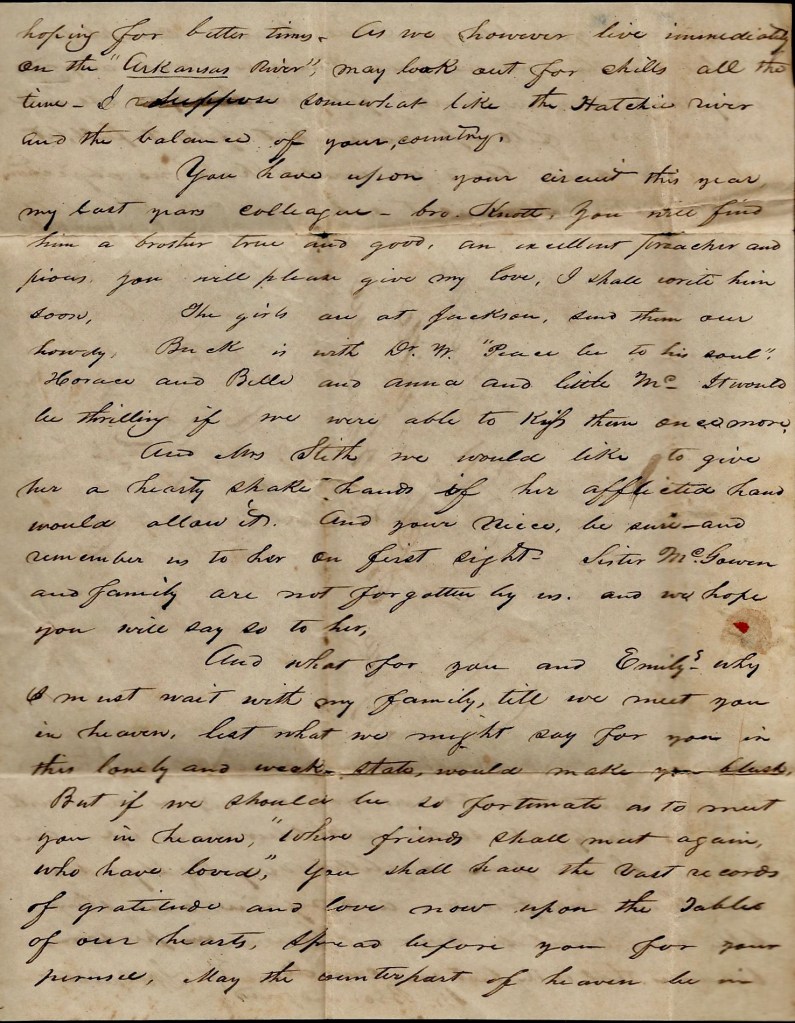 hoping for better times. As we however live immediately
on the "Arkansas River", may look out for chills all the
time - I suppose somewhat like the Hatchie river
and the balance of your country.
You have upon your circuit this year,
my last years colleague - bro. Knott, You will find
him a brother true and good, an excellent preacher and
pious you will please give my love, I shall write him
soon, The girls are at Jackson, send them our
howdy, Buck is with Dr. W. "Peace be to his soul".
Horace and Belle and Anna and little Mc. It would
be thrilling if we were able to kiss them once more.
And Mrs Stith we would like to give
her a hearty shake hands if her afflicted hand
would allow it. And your Niece, be sure - and
remember us to her on first sight - Sister McGowen
and family are not forgotten by us. and we hope
you will say so to her,
And what for you and Emily - why
I must wait with my family, till we meet you
in heaven, lest what we might say for you in
this lonely and weak state, would make you blush.
But if we should be so fortunate as to meet
you in heaven, "Where friends shall meet again,
who have loved", You shall have the vast records
of gratitude and love now upon the Tables
of our hearts, spread before you for your
perusee, May the counterpart of heaven be in